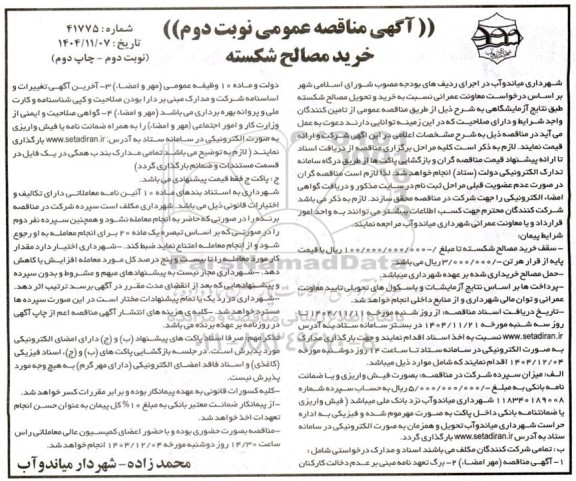 ((آگهی مناقصه عمومی نوبت دوم))
خرید مصالح شکسته
شماره: ۴۱۷۷۵
تاریخ: ۱۴۰۴/۱۱/۰۷
(نوبت دوم - چاپ دوم)
شهرداری میاندوآب در اجرای ردیف های بودجه مصوب شورای اسلامی شهر
بر اساس درخواست معاونت عمرانی نسبت به خرید و تحویل مصالح شکسته
طبق نتایج آزمایشگاهی به شرح ذیل از طریق مناقصه عمومی از تامین کنندگان
واجد شرایط و دارای صلاحیت که در این زمینه توانایی دارند دعوت به عمل
می آید در مناقصه ذیل به شرح مشخصات اعلامی در این آگهی شرکت و ارائه
قیمت نمایند. لازم به ذکر است کلیه مراحل برگزاری مناقصه از دریافت اسناد
تا ارائه پیشنهاد قیمت مناقصه گران و بازگشایی پاکت ها از طریق درگاه سامانه
تدارک الکترونیکی دولت (ستاد) انجام خواهد شد لذا لازم است مناقصه گران
در صورت عدم عضویت قبلی مراحل ثبت نام در سایت مذکور و دریافت گواهی
امضاء الکترونیکی را جهت شرکت در مناقصه محقق سازند. لازم به ذکر می باشد
شرکت کنندگان محترم جهت کسب اطلاعات بیشتر می توانند به واحد امور
قرارداد و یا معاونت عمرانی شهرداری میاندوآب مراجعه نمایند.
شرایط پیمان:
- سقف خرید مصالح شکسته تا مبلغ /۱۰۰/۰۰۰/۰۰۰/۰۰۰ ریال با قیمت
پایه از قرار هر تن /۳/۰۰۰/۰۰۰ ریال می باشد
- حمل مصالح خریداری شده بر عهده شهرداری میباشد
- پرداخت ها بر اساس نتایج آزمایشات و باسکول های تحویلی تایید معاونت
عمرانی و توان مالی شهرداری و از منابع داخلی انجام خواهد شد.
- تاریخ دریافت اسناد مناقصه: از روز شنبه مورخه ۱۴۰۴/۱۱/۱۱ تا
روز سه شنبه مورخه ۱۴۰۴/۱۱/۲۱ در بستر سامانه ستاد به آدرس
www.setadiran.ir نسبت به اخذ اسناد اقدام نمایند و جهت بارگذاری مدارک
به صورت الکترونیکی در سامانه ستاد تا ساعت ۱۴ روز دوشنبه مورخه
۱۴۰۴/۱۲/۰۴ اقدام نمایند که شامل موارد ذیل میباشد
الف: میزان سپرده شرکت در مناقصه: بصورت فیش واریزی و یا ضمانت
نامه بانکی به مبلغ /۵/۰۰۰/۰۰۰/۰۰۰ ریال به حساب سپرده شماره
۱۱۸۳۴۰۱۸۹۰۰۸ شهرداری میاندوآب نزد بانک ملی میباشد (فیش واریزی
یا ضمانتنامه بانکی داخل پاکت به صورت مهرموم شده و فیزیکی به اداره
حراست شهرداری میاندوآب تحویل و همزمان به صورت الکترونیکی در سامانه
ستاد به آدرس www.setadiran.ir بارگذاری گردد.
ب: تمامی شرکت کنندگان مکلف می باشند اسناد و مدارک درخواستی شامل:
۱- آگهی مناقصه (مهر امضاء) ۲- برگ تعهد نامه مبنی بر عدم دخالت کارکنان
دولت و ماده ۱۰ وظیفه عمومی (مهر و امضاء) ۳- آخرین آگهی تغییرات و
اساسنامه شرکت و مدارک مبنی بر دارا بودن صلاحیت و کپی شناسنامه و کارت
ملی و پروانه بهره برداری می باشد (مهر و امضاء) ۴- گواهی صلاحیت و ایمنی از
وزارت کار و امور اجتماعی (مهر و امضاء) را به همراه ضمانت نامه یا فیش واریزی
به صورت الکترونیکی در سامانه ستاد به آدرس: www.setadiran.ir بارگذاری
نمایند (لازم به توضیح می باشد تمامی مدارک بند ب همگی در یک فایل در
قسمت مستندات و ضمائم بارگذاری گردد)
ج: پاکت ج فقط قیمت پیشنهادی می باشد.
شهرداری به استناد بندهای ماده ۱۰ آئین نامه معاملاتی دارای تکالیف و
اختیارات قانونی ذیل می باشد. شهرداری مکلف است سپرده شرکت در مناقصه
برنده را در صورتی که حاضر به انجام معامله نشود و همچنین سپرده نفر دوم
را در صورتی که بر اساس تبصره یک ماده ۲۰ برای انجام معامله به او رجوع
شود و از انجام معامله امتناع نماید ضبط کند. - شهرداری اختیار دارد مقدار
کار مورد معامله را تا بیست و پنج درصد کل مورد معامله افزایش یا کاهش
دهد. - شهرداری مجاز نیست به پیشنهادهای مبهم و مشروط و بدون سپرده
و پیشنهادهایی که بعد از انقضای مدت مقرر در آگهی برسد ترتیب اثر دهد.
- شهرداری در رد یک یا تمام پیشنهادات مختار است و در این صورت سپرده ها
مسترد خواهد شد. - کلیه ی هزینه های انتشار آگهی مناقصه اعم از چاپ آگهی
در روزنامه بر عهده برنده می باشد.
تذکر: در سامانه ستاد صرفا اسناد پاکت های پیشنهاد (ب) و (ج) دارای امضای الکترونیکی
مورد پذیرش است. در جلسه بازگشایی پاکت های (ب) و (ج)، اسناد فیزیکی
(کاغذی) و اسناد فاقد امضای الکترونیکی (دارای مهر گرم) به هیچ وجه مورد
پذیرش نیست.
- کلیه کسورات قانونی به عهده پیمانکار بوده و برابر مقررات کسر خواهد شد.
- از پیمانکار ضمانت معتبر بانکی به مبلغ ۱۰% کل پیمان به عنوان حسن انجام
تعهدات اخذ خواهد شد.
- مناقصه بصورت حضوری بوده و با حضور اعضای کمیسیون عالی معاملاتی راس
ساعت ۱۴/۳۰ روز دوشنبه مورخه ۱۴۰۴/۱۲/۰۴ انجام خواهد شد.
محمد زاده - شهردار میاندوآب